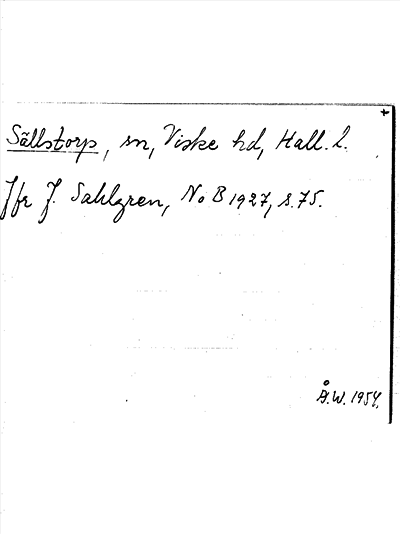 +
Sällstorp, sn, Viske hd, Hall. l.
Jfr J. Sahlgren, NoB 1927, s. 75.
Å.W. 1954.